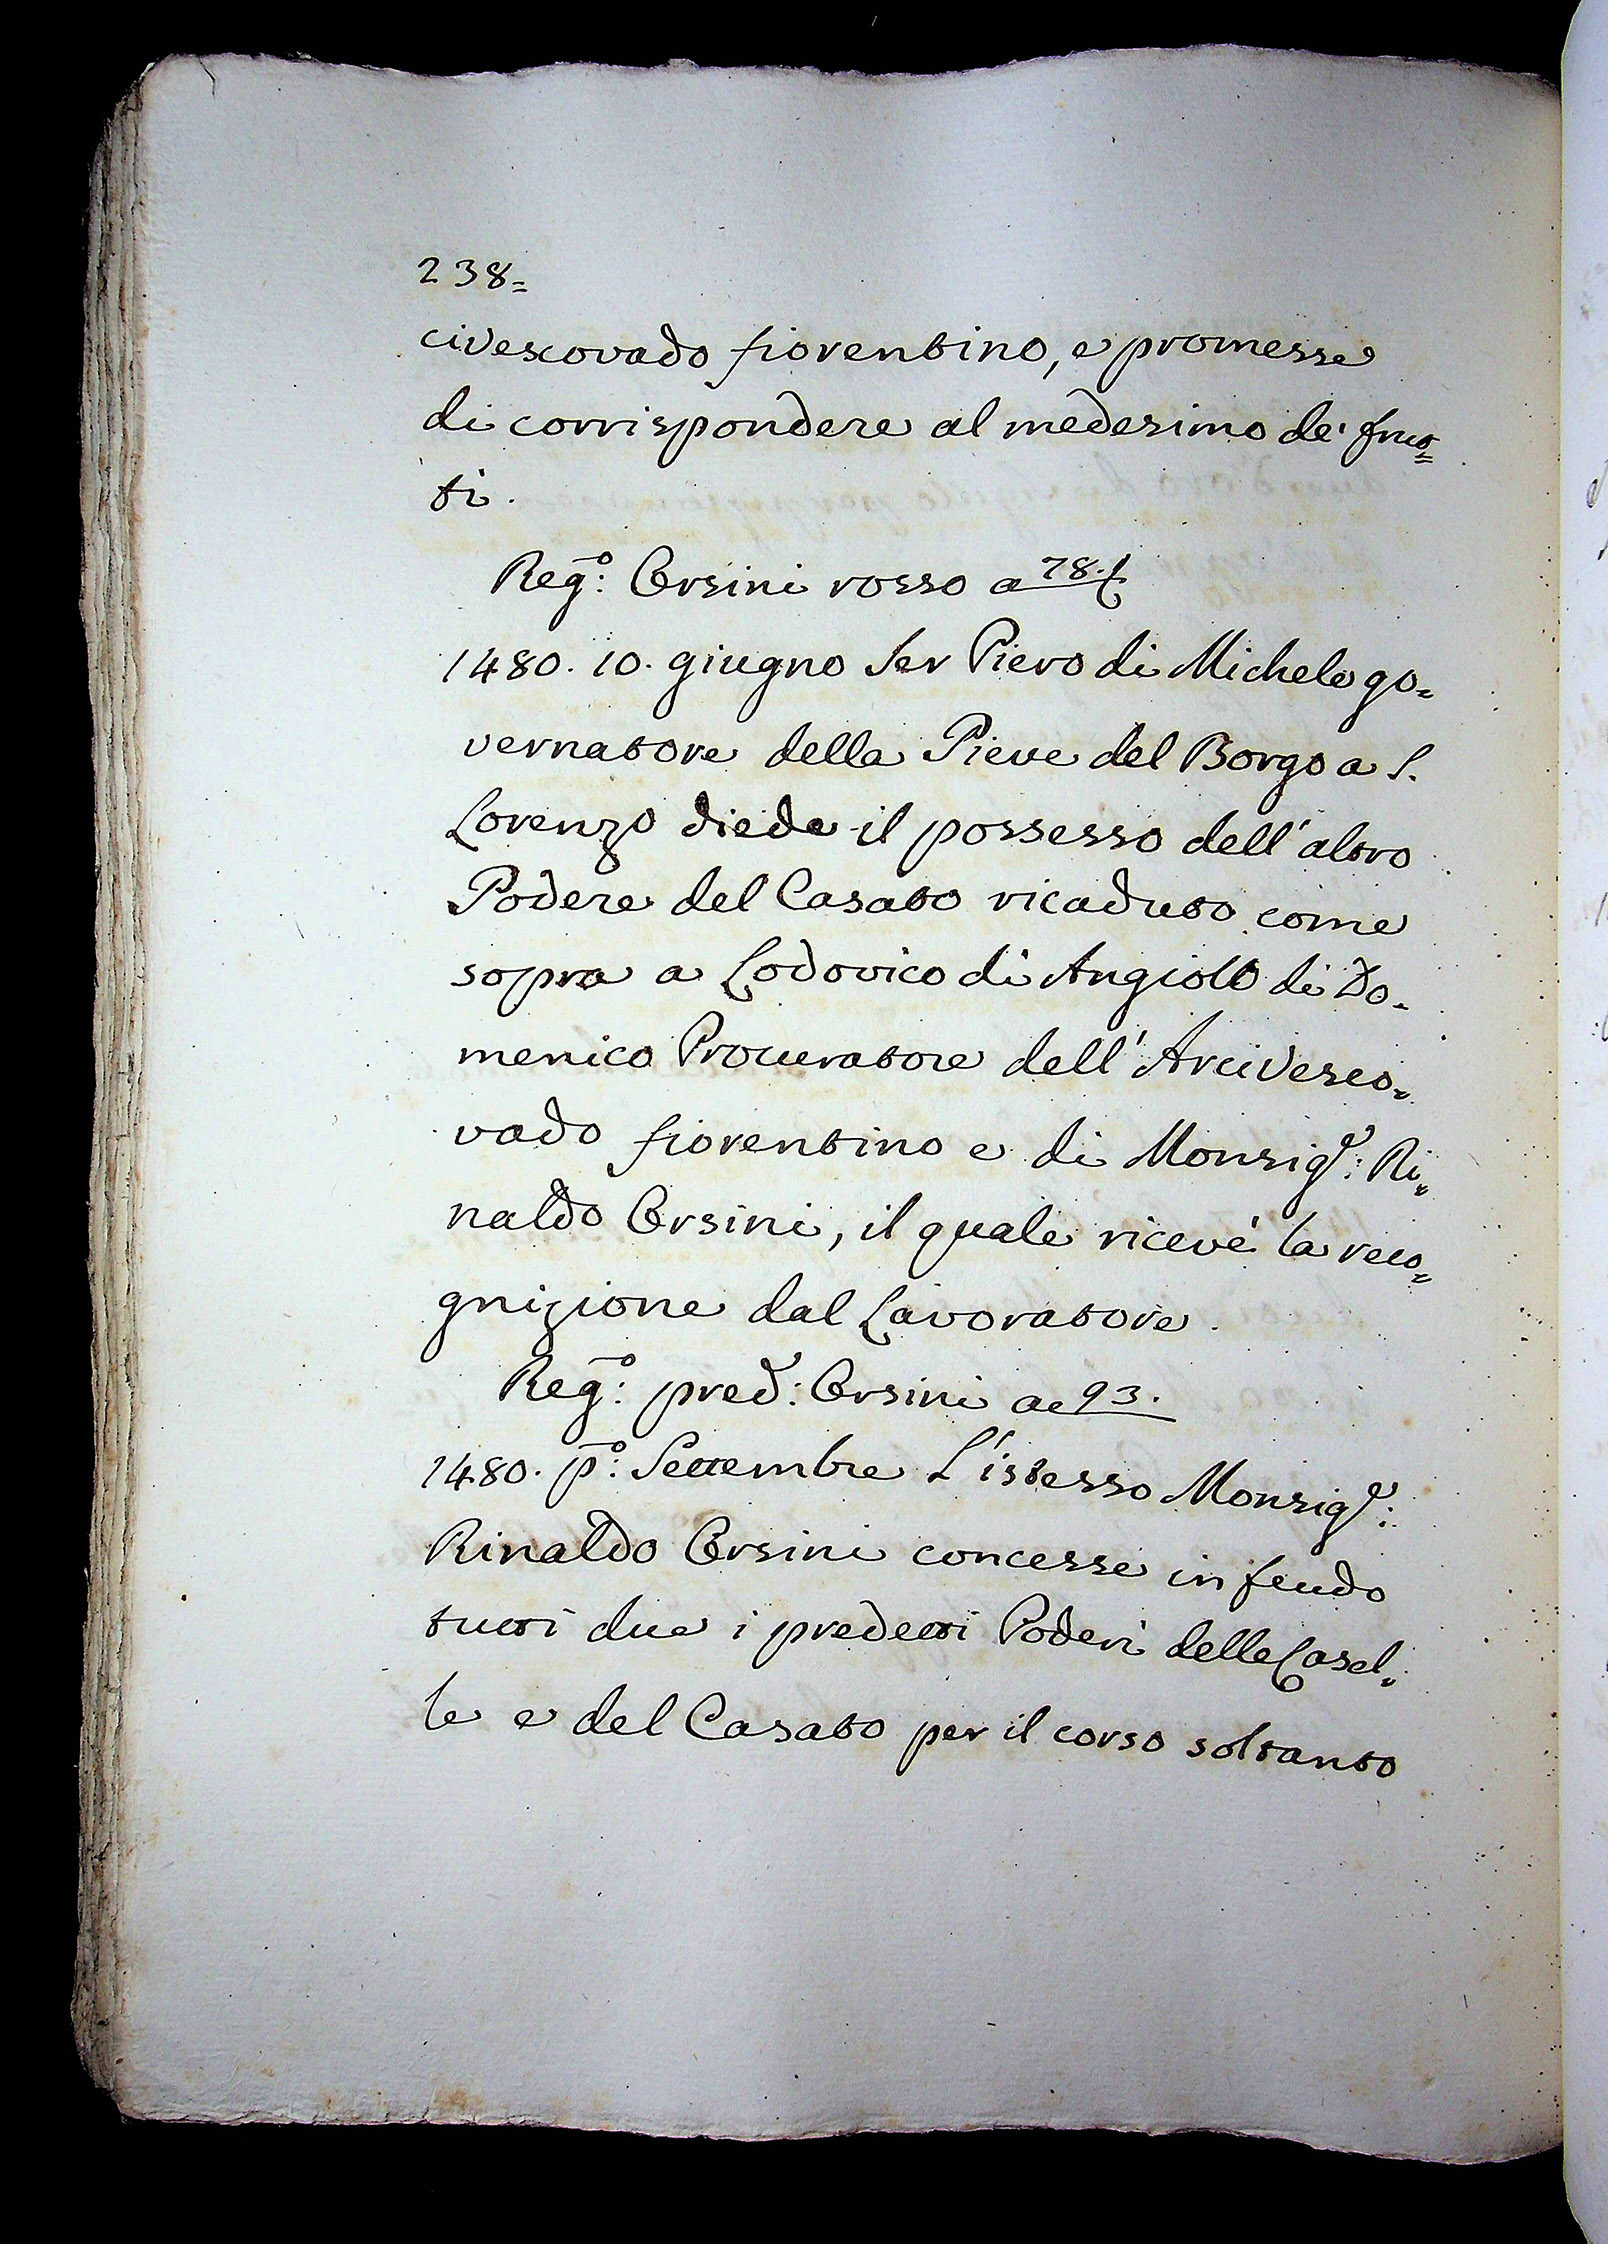 238=
civescovado fiorentino, e promesse
di corrispondere al medesimo de' frut=
ti.
Reg.º: Orsini rosso a 78. t
1480. 10. giugno Ser Piero di Michele go=
vernatore della Pieve del Borgo a S.
Lorenzo diede il possesso dell' altro
Podere del Casato ricaduto come
sopra a Lodovico di Angiolo di Do=
menico Procuratore dell' Arcivesco=
vado fiorentino e di Monsig.r: Ri=
naldo Orsini, il quale ricevè la reco=
gnizione dal Lavoratore.
Reg.º: pred: Orsini ae 93.
1480. p.º: Settembre L'istesso Monsig.r:
Rinaldo Orsini concesse in feudo
tutti due i predetti Poderi delle Casel=
le e del Casato per il corso soltanto